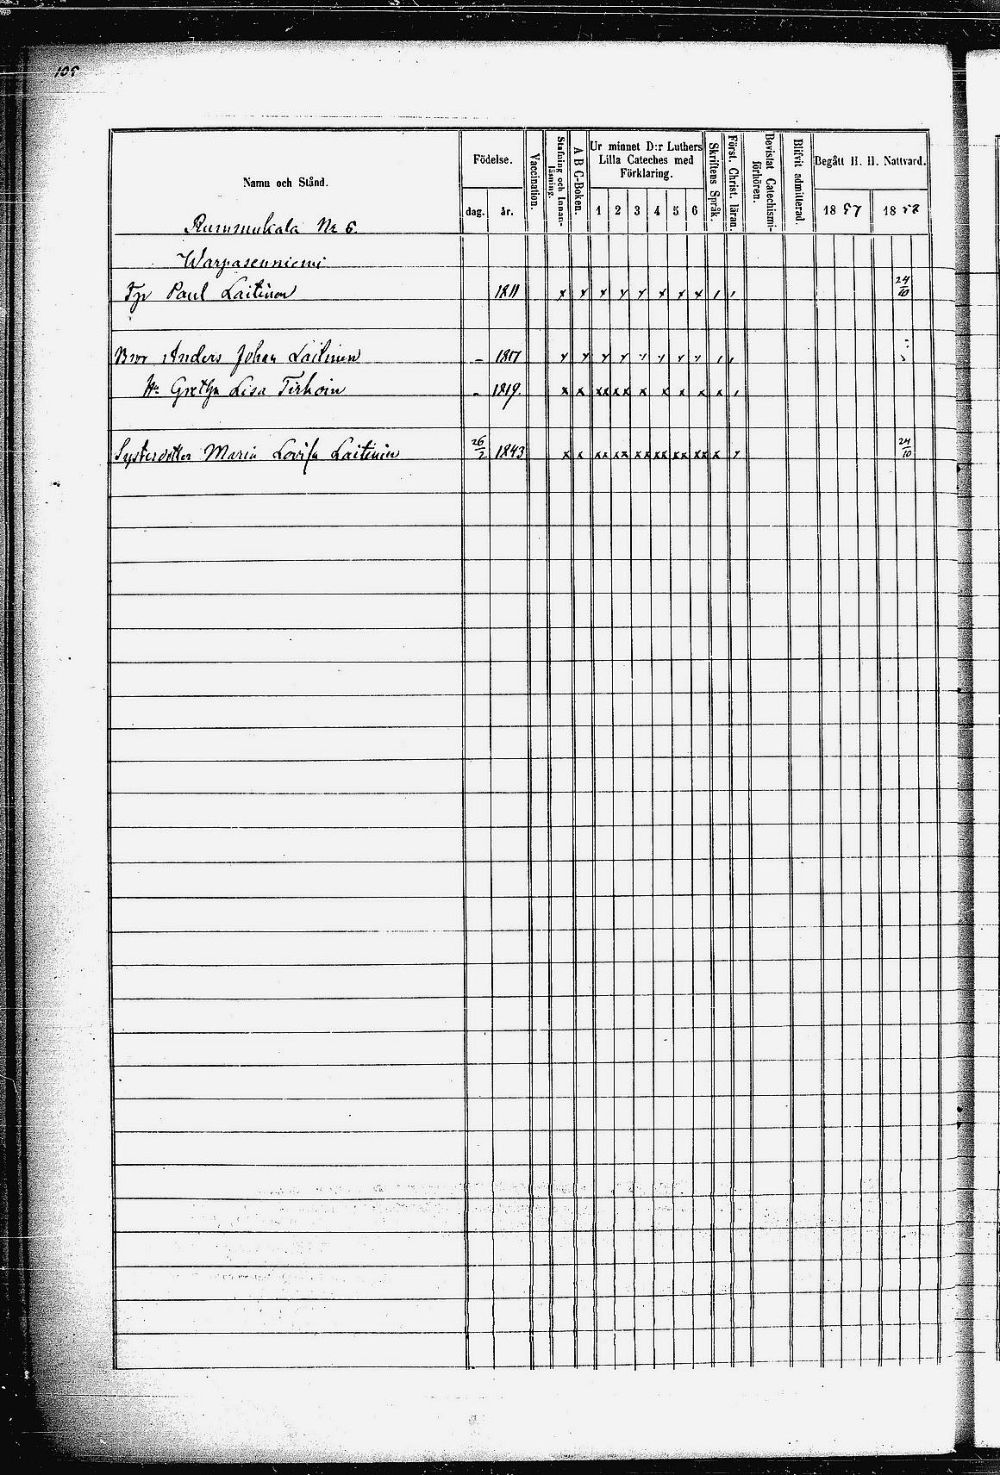 105
Namn och Stånd.
Födelse.
dag. år.
Vaccination.
Stafning och Innanläsning.
A B C-Boken.
Ur minnet D:r Luthers Lilla Cateches med Förklaring.
1 2 3 4 5 6
Skriftens Språk.
Först. Christ. läran.
Bevistat Catechismiförhören.
Blifvit admitterad.
Begått H. H. Nattvard.
18 57 18 58
Rummukala Nr 6.
Warpasenniemi
Paul Laitinen 1811 x x x x x x x x / / 24/10
Bror Anders Johan Laitinen - x x x x x x x x / /
Hu Gretha Lisa Tirkoin - 1819. x x xx xx x x x x x /
Systerdotter Maria Lovisa Laitinen 26/2 1843 x x xx xx xx xx xx xx x x 24/10